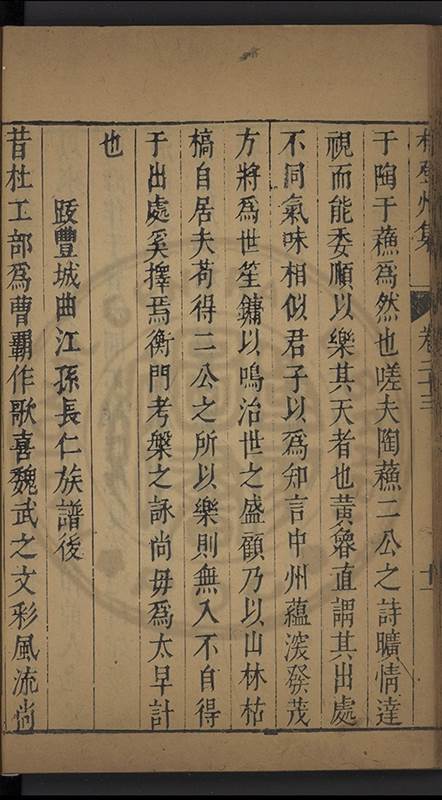 登州集 卷二十三 十一
于陶于蘓為然也嗟夫陶蘓二公之詩曠情達
視而能委順以樂其天者也黃魯直謂其出處
不同氣味相似君子以為知言中州蘊深發茂
方將為世笙鏞以鳴治世之盛顧乃以山林枯
槁自居夫苟得二公之所以樂則無入不自得
于出處奚擇焉衡門考槃之詠尚毋為太早計
也
跋豐城曲江孫長仁族譜後
昔杜工部為曹霸作歌喜魏武之文彩風流尚